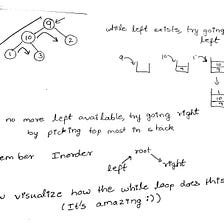 9
10
2
1
3
while left exists, try going
left
9
10
10
9
1
10
9
no more left available, try going right
by picking top most in stack
ember Inorder
root
left
right
visualize how the while loop does this
(It's amazing :))